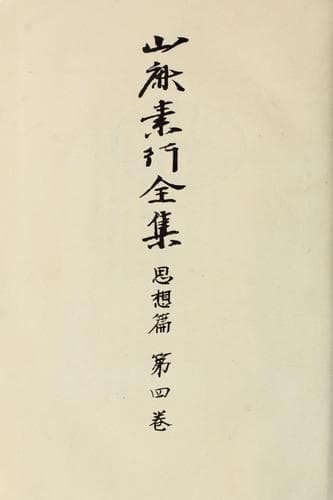 山鹿素行全集 思想篇 第四卷